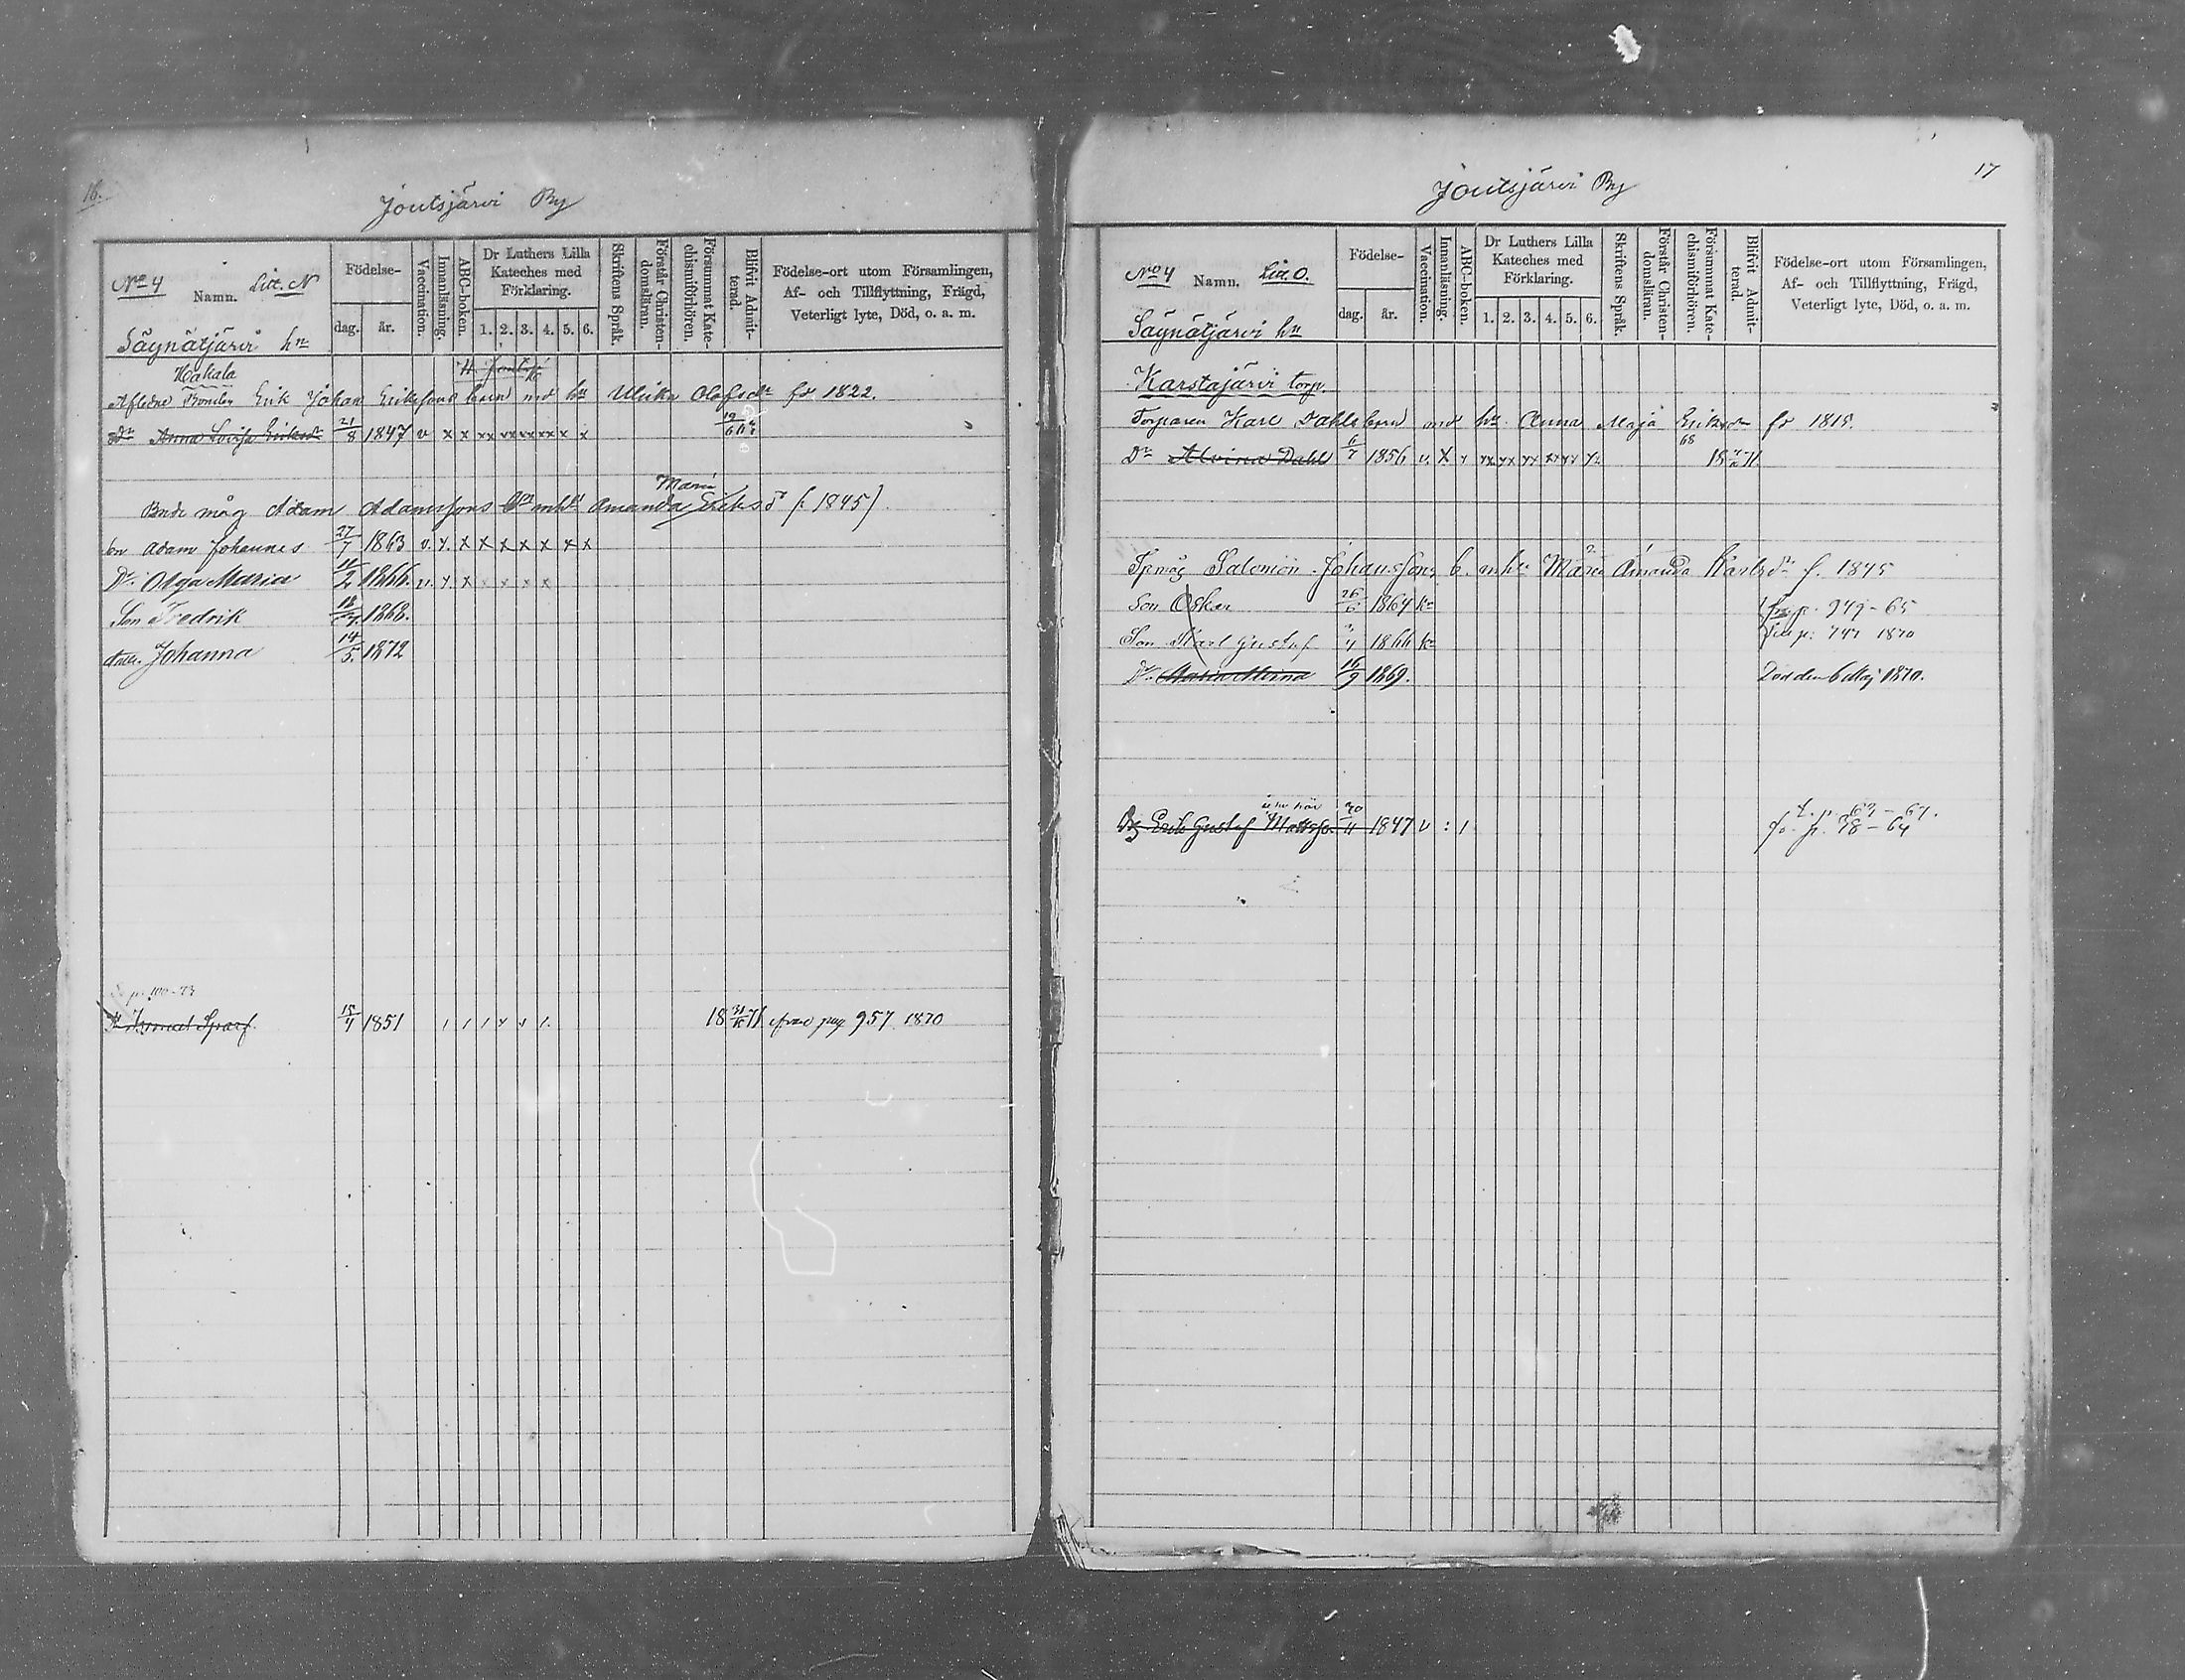 16.
Joutsjärvi By
No 4 Litt. N
Namn.
Födelse-
dag. år.
Vaccination.
Innanläsning.
ABC-boken.
Dr Luthers Lilla Kateches med Förklaring.
1. 2. 3. 4. 5. 6.
Skriftens Språk.
Förstår Christendomsläran.
Försummat Katechismiförhören.
Blifvit Admitterad.
Födelse-ort utom Församlingen, Af- och Tillflyttning, Frägd, Veterligt lyte, Död, o. a. m.
Säynätjärvi hn
Hakala
Aflidne Bonden Erik Johan Eriksons barn md hu Ulrika Olofsdr fd 1822.
Dr Anna Lovisa Eriksdr 21/8 1847 v x x xx xx xx xx x x
Maria
Bonde måg Adam Adamssons mhu Amanda Eriksd (f. 1845)
Son Adam Johannes 27/7 1863 v. y. x x x x x x x
Dr. Olga Maria 11/2 1866. v. y. x x x x x
Son Fredrik 1868.
Johanna 14/5. 1872
p. 100-73
Sparf. 15/4 1851 18 71 från pag 957 1870
17
Joutsjärvi By
No 4 Litt. O.
Namn.
Födelse-
dag. år.
Vaccination.
Innanläsning.
ABC-boken.
Dr Luthers Lilla Kateches med Förklaring.
1. 2. 3. 4. 5. 6.
Skriftens Språk.
Förstår Christendomsläran.
Försummat Katechismiförhören.
Blifvit Admitterad.
Födelse-ort utom Församlingen, Af- och Tillflyttning, Frägd, Veterligt lyte, Död, o. a. m.
Säynätjärvi hn
Karstajärvi torp.
Torparen Karl Dahls barn md hu Anna Maja Eriksdr fd 1815.
Dr Alvina Dahl 6/7 1856 v. x
Salomon Johanssons b. mhu Maria Amanda Karlsdr f. 1845
Son Oskar 26/6 1864 fr. p. 949-65
Son Karl Gustaf 1866 Till p: 747 1870
Dr. 16/9 1869. Död den 6 Maj 1870.
Erik Gustaf Mattsson 30/11 1847 v
fr. p. 38-64